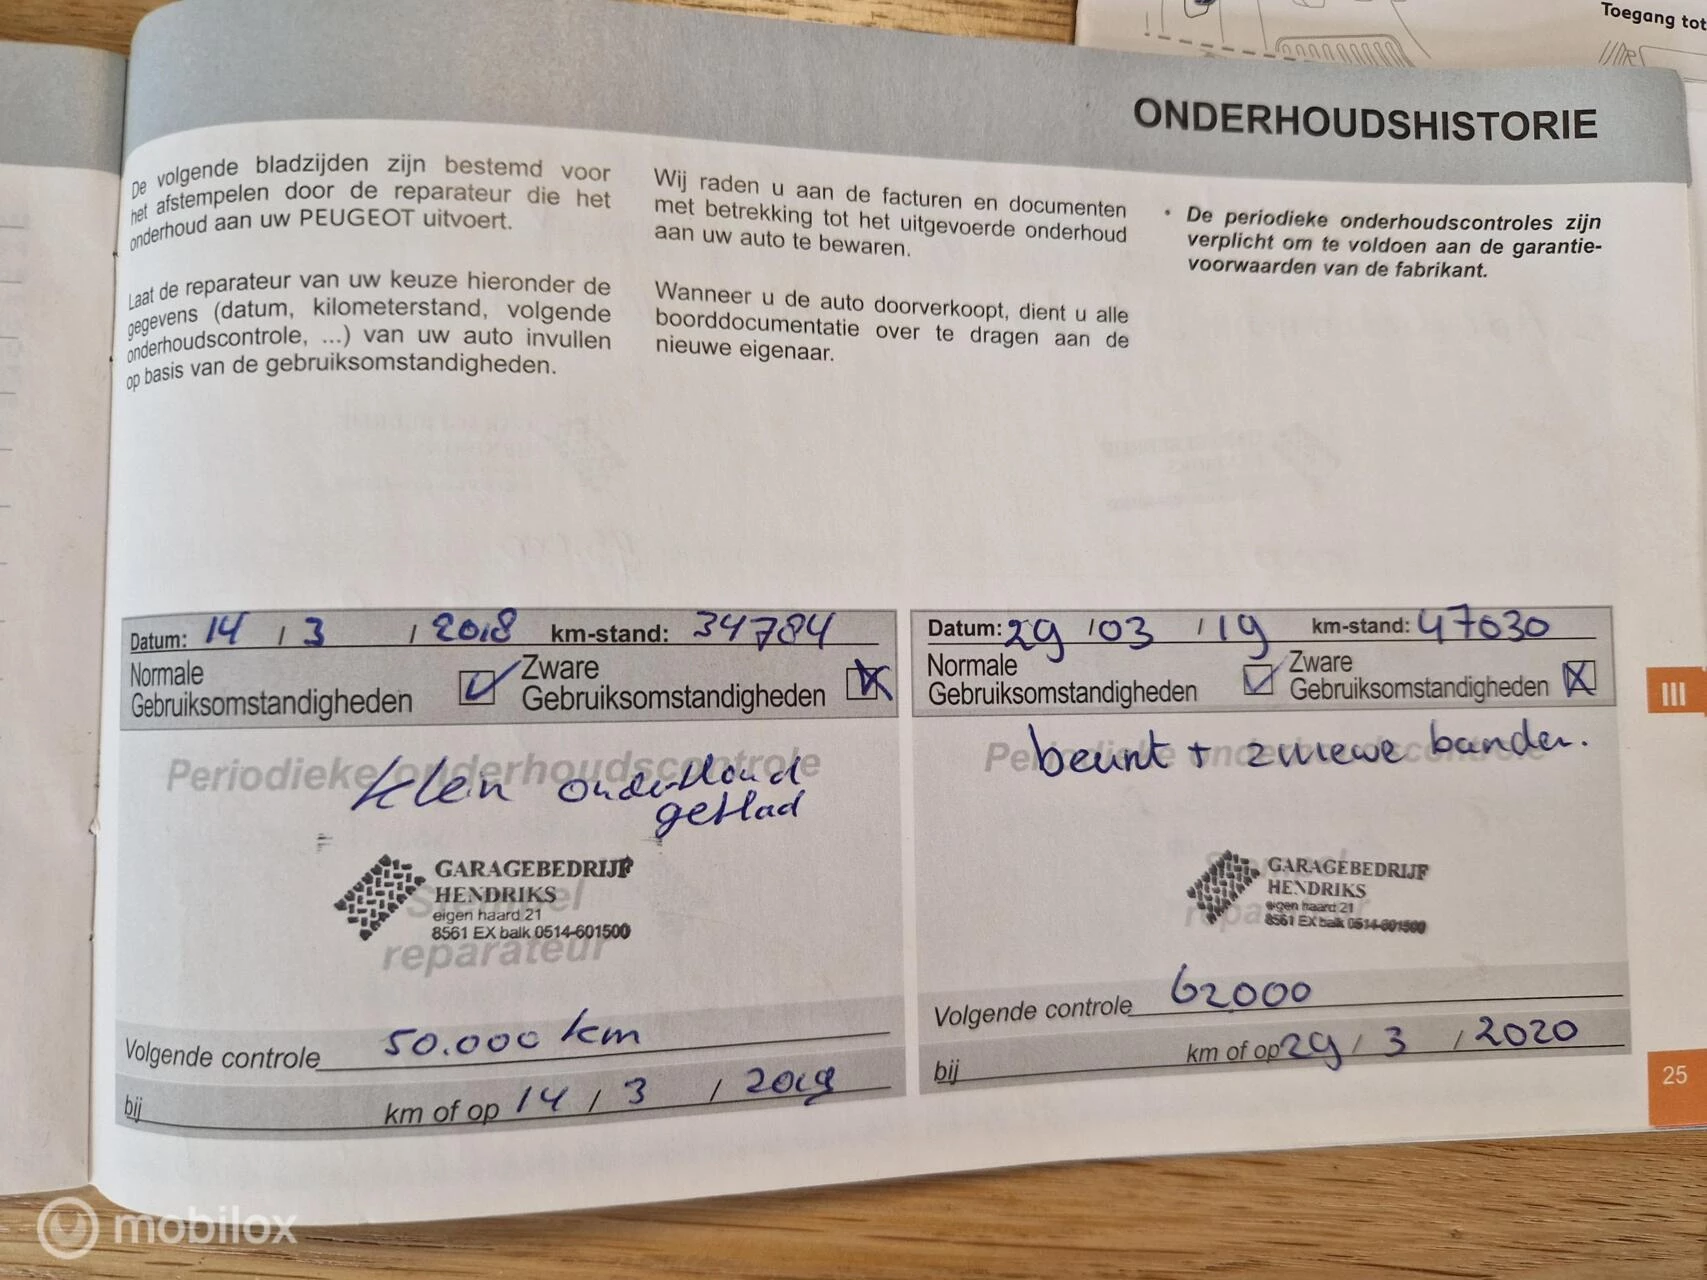 Toegang tot
ONDERHOUDSHISTORIE
De volgende bladzijden zijn bestemd voor
het afstempelen door de reparateur die het
onderhoud aan uw PEUGEOT uitvoert.
Laat de reparateur van uw keuze hieronder de
gegevens (datum, kilometerstand, volgende
onderhoudscontrole, ...) van uw auto invullen
op basis van de gebruiksomstandigheden.
Wij raden u aan de facturen en documenten
met betrekking tot het uitgevoerde onderhoud
aan uw auto te bewaren.
Wanneer u de auto doorverkoopt, dient u alle
boorddocumentatie over te dragen aan de
nieuwe eigenaar.
• De periodieke onderhoudscontroles zijn
verplicht om te voldoen aan de garantie-
voorwaarden van de fabrikant.
Datum: 14 / 3 / 2018 km-stand: 34784
Normale
Gebruiksomstandigheden
Zware
Gebruiksomstandigheden
Periodieke onderhoudscontrole
klein onderhoud
gehad
GARAGEBEDRIJF
HENDRIKS
eigen haard 21
8561 EX balk 0514-601500
Stempel
reparateur
Volgende controle 50.000 km
bij km of op 14 / 3 / 2019
Datum: 29 / 03 / 19 km-stand: 47030
Normale
Gebruiksomstandigheden
Zware
Gebruiksomstandigheden
Periodieke onderhoudscontrole
beurt + 2 nieuwe banden.
GARAGEBEDRIJF
HENDRIKS
eigen haard 21
8561 EX balk 0514-601500
Stempel
reparateur
Volgende controle 62000
bij km of op 29 / 3 / 2020
III
25
mobilox